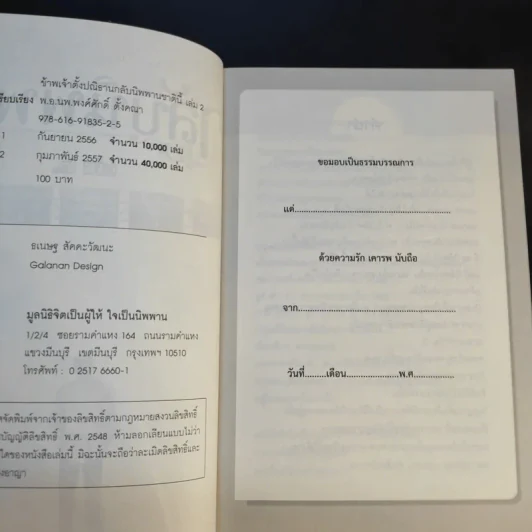 ข้าพเจ้าตั้งปณิธานกลับนิพพานชาตินี้ เล่ม 2
เรียบเรียง พ.อ.นพ.พงศ์ศักดิ์ ตั้งคณา
978-616-91835-2-5
1 กันยายน 2556 จำนวน 10,000 เล่ม
2 กุมภาพันธ์ 2557 จำนวน 40,000 เล่ม
100 บาท
ธเนษฐ สัคคะวัฒนะ
Galanan Design
มูลนิธิจิตเป็นผู้ให้ ใจเป็นนิพพาน
1/2/4 ซอยรามคำแหง 164 ถนนรามคำแหง
แขวงมีนบุรี เขตมีนบุรี กรุงเทพฯ 10510
โทรศัพท์ : 0 2517 6660-1
จัดพิมพ์จากเจ้าของลิขสิทธิ์ตามกฎหมายสงวนลิขสิทธิ์
บัญญัติลิขสิทธิ์ พ.ศ. 2548 ห้ามลอกเลียนแบบไม่ว่า
ใดของหนังสือเล่มนี้ มิฉะนั้นจะถือว่าละเมิดลิขสิทธิ์และ
อาญา
ขอมอบเป็นธรรมบรรณการ
แด่..........................................................
ด้วยความรัก เคารพ นับถือ
จาก..........................................................
วันที่.........เดือน.....................พ.ศ................